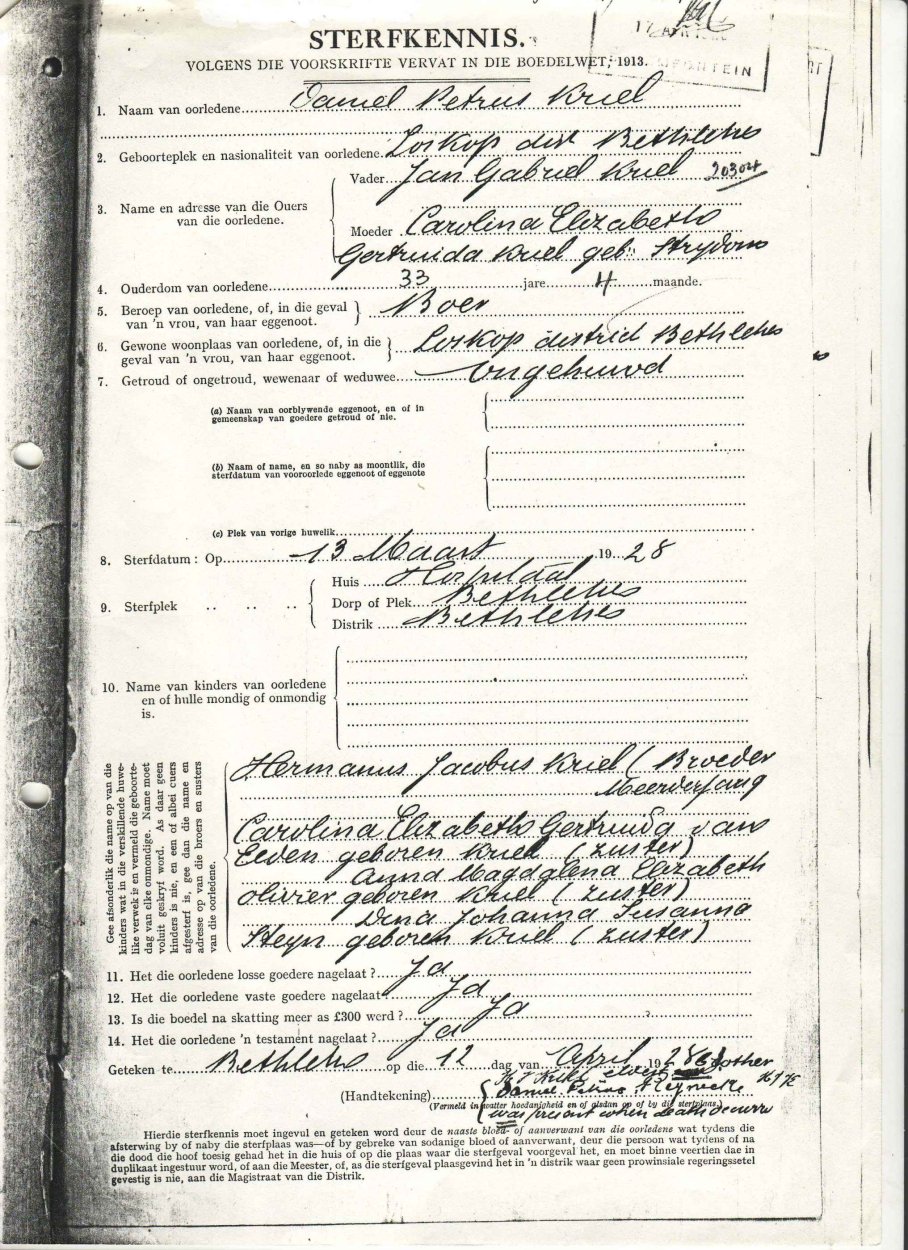 STERFKENNIS.
VOLGENS DIE VOORSKRIFTE VERVAT IN DIE BOEDELWET, 1913.
1. Naam van oorledene Daniel Petrus Kriel
2. Geboorteplek en nasionaliteit van oorledene. Loskop dist Bethlehem
3. Name en adresse van die Ouers van die oorledene.
Vader Jan Gabriel Kriel 20304
Moeder Carolina Elizabeth
Gertruida Kriel geb: Strydom
4. Ouderdom van oorledene 33 jare 4 maande.
5. Beroep van oorledene, of, in die geval van 'n vrou, van haar eggenoot. Boer
6. Gewone woonplaas van oorledene, of, in die geval van 'n vrou, van haar eggenoot. Loskop district Bethlehem
7. Getroud of ongetroud, wewenaar of weduwee Ongehuwd
(a) Naam van oorblywende eggenoot, en of in
gemeenskap van goedere getroud of nie.
(b) Naam of name, en so naby as moontlik, die
sterfdatum van vooroorlede eggenoot of eggenote
(c) Plek van vorige huwelik
8. Sterfdatum: Op 13 Maart 1928
9. Sterfplek
Huis Hospitaal
Dorp of Plek Bethlehem
Distrik Bethlehem
10. Name van kinders van oorledene
en of hulle mondig of onmondig
is.
Gee afsonderlik die name op van die
kinders wat in die verskillende huwe-
like verwek is en vermeld die geboorte-
dag van elke onmondige. Name moet
voluit geskryf word. As daar geen
kinders is nie, en een of albei ouers
afgesterf is, gee dan die name en
adresse op van die broers en susters
van die oorledene.
Hermanus Jacobus Kriel (Broeder
Meerderjarig
Carolina Elizabeth Gertruida van
Eeden geboren Kriel (zuster)
Anna Magdalena Elizabeth
Olivier geboren Kriel (zuster)
Dina Johanna Susanna
Steyn geboren Kriel (zuster)
11. Het die oorledene losse goedere nagelaat? Ja
12. Het die oorledene vaste goedere nagelaat Ja
13. Is die boedel na skatting meer as £300 werd? Ja
14. Het die oorledene 'n testament nagelaat? Ja
Geteken te Bethlehem op die 12 dag van April 1928
(Handtekening) Daniel Petrus
(Vermeld in watter hoedanigheid en of aldan op of by die sterfplaas.)
was present when death occurred
Hierdie sterfkennis moet ingevul en geteken word deur de naaste bloed- of aanverwant van die oorledene wat tydens die
afsterwing by of naby die sterfplaas was—of by gebreke van sodanige bloed of aanverwant, deur die persoon wat tydens of na
die dood die hoof toesig gehad het in die huis of op die plaas waar die sterfgeval voorgeval het, en moet binne veertien dae in
duplikaat ingestuur word, of aan die Meester, of, as die sterfgeval plaasgevind het in 'n distrik waar geen prowinsiale regeringssetel
gevestig is nie, aan die Magistraat van die Distrik.